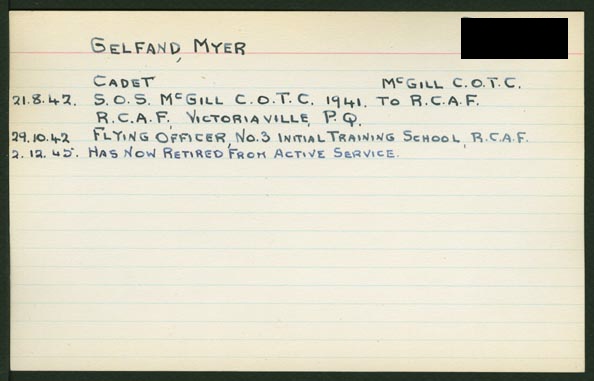 GELFAND, MYER
CADET McGILL C.O.T.C.
21.8.42. S.O.S. McGILL C.O.T.C. 1941. TO R.C.A.F.
R.C.A.F. VICTORIAVILLE, P.Q.
29.10.42 FLYING OFFICER, No.3 INITIAL TRAINING SCHOOL, R.C.A.F.
2.12.45. HAS NOW RETIRED FROM ACTIVE SERVICE.